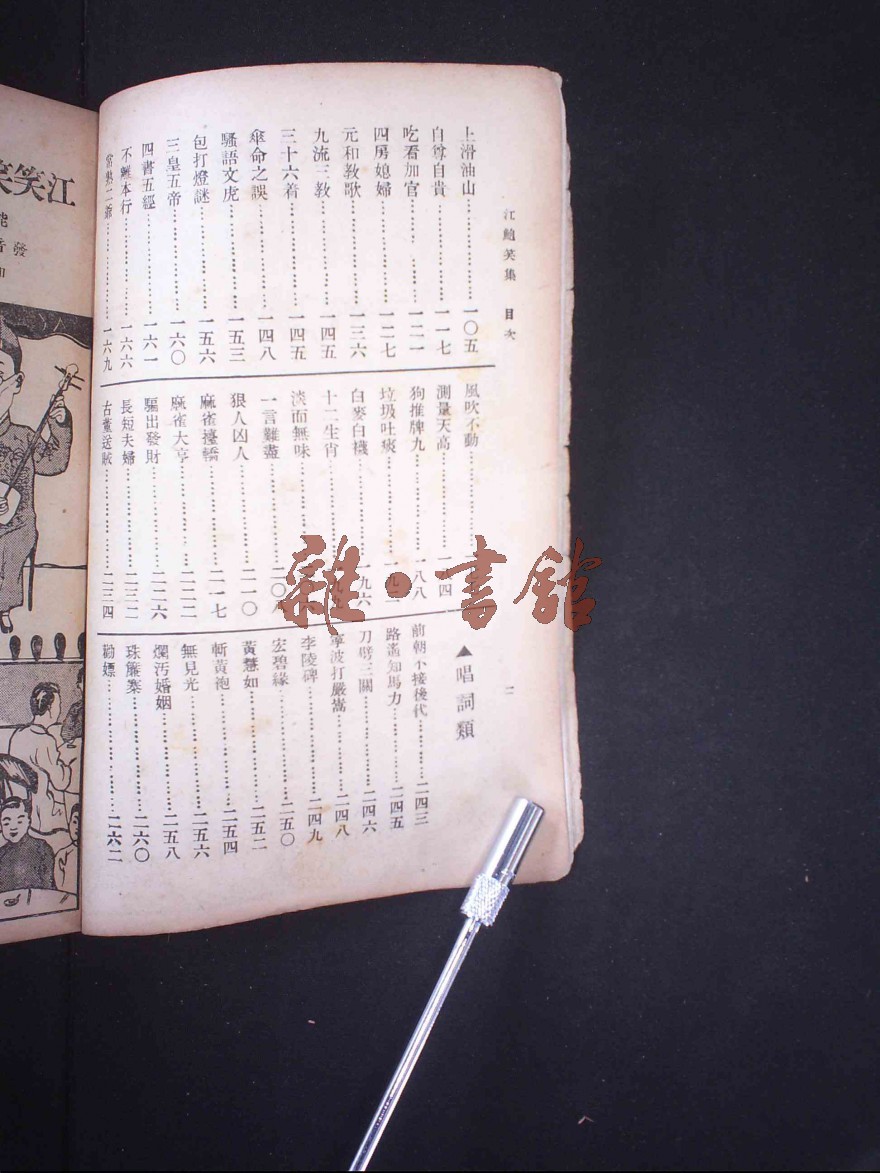 江鮑笑集　目次
二
上滑油山……一〇五
自尊自貴……一一七
吃看加官……一二一
四房媳婦……一二七
元和教歌……一三六
九流三教……一四五
三十六着……一四五
傘命之誤……一四八
騷語文虎……一五三
包打燈謎……一五六
三皇五帝……一六〇
四書五經……一六一
不離本行……一六六
常熟二爺……一六九
風吹不動
測量天高……一八四
狗推牌九……一八八
垃圾吐痰
白麥白襪……一九六
十二生肖
淡而無味
一言難盡
狠人凶人……二一〇
麻雀擡轎……二一七
麻雀大亨……二二二
驅出發財……二二六
長短夫婦……二三二
古董送賊……二三四
▲唱詞類
前朝不接後代……二四三
路遙知馬力……二四五
刀劈三關……二四六
寧波打嚴嵩……二四八
李陵碑……二四九
宏碧緣……二五〇
黃慧如……二五二
斬黃袍……二五四
無見光……二五六
爛汚婚姻……二五八
珠簾寨……二六〇
勸嫖……二六二
江笑笑
發
雜·書館